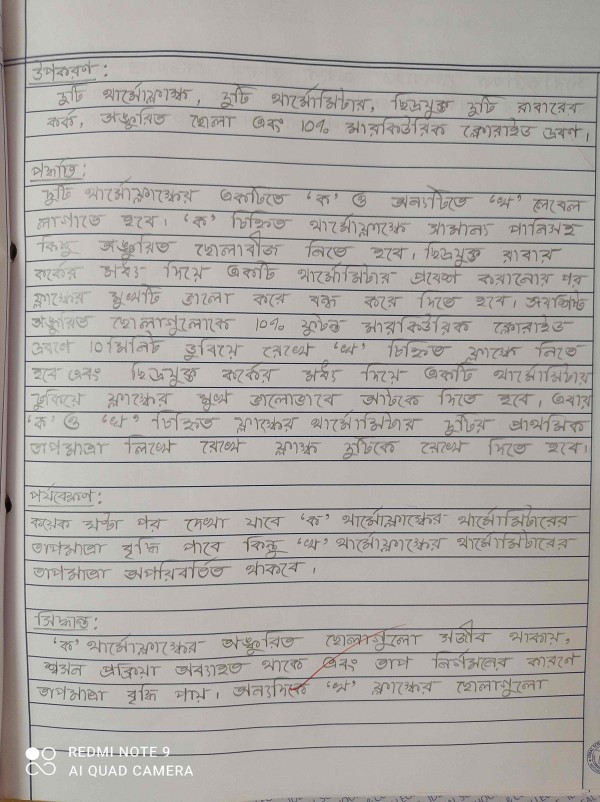 উপকরণ:
দুটি থার্মোফ্লাস্ক, দুটি থার্মোমিটার, ছিদ্রযুক্ত দুটি রাবারের
কর্ক, অঙ্কুরিত ছোলা এবং 10% মারকিউরিক ক্লোরাইড দ্রবণ।
পদ্ধতি:
দুটি থার্মোফ্লাস্কের একটিতে 'ক' ও অন্যটিতে 'খ' লেবেল
লাগাতে হবে। 'ক' চিহ্নিত থার্মোফ্লাস্কে সামান্য পানিসহ
কিছু অঙ্কুরিত ছোলাবীজ নিতে হবে। ছিদ্রযুক্ত রাবার
কর্কের মধ্য দিয়ে একটি থার্মোমিটার প্রবেশ করানোর পর
ফ্লাস্কের মুখটি ভালো করে বন্ধ করে দিতে হবে। অবশিষ্ট
অঙ্কুরিত ছোলাগুলোকে 10% ফুটন্ত মারকিউরিক ক্লোরাইড
দ্রবণে 10 মিনিট ডুবিয়ে রেখে 'খ' চিহ্নিত ফ্লাস্কে নিতে
হবে এবং ছিদ্রযুক্ত কর্কের মধ্য দিয়ে একটি থার্মোমিটার
ঢুকিয়ে ফ্লাস্কের মুখ ভালোভাবে আটকে দিতে হবে। এবার
'ক' ও 'খ' চিহ্নিত ফ্লাস্কের থার্মোমিটার দুটির প্রাথমিক
তাপমাত্রা লিখে রেখে ফ্লাস্ক দুটিকে রেখে দিতে হবে।
পর্যবেক্ষণ:
কয়েক ঘণ্টা পর দেখা যাবে 'ক' থার্মোফ্লাস্কের থার্মোমিটারের
তাপমাত্রা বৃদ্ধি পাবে কিন্তু 'খ' থার্মোফ্লাস্কের থার্মোমিটারের
তাপমাত্রা অপরিবর্তিত থাকবে।
সিদ্ধান্ত:
'ক' থার্মোফ্লাস্কের অঙ্কুরিত ছোলাগুলো সজীব থাকায়,
শ্বসন প্রক্রিয়া অব্যাহত থাকে এবং তাপ নির্গমনের কারণে
তাপমাত্রা বৃদ্ধি পায়। অন্যদিকে 'খ' ফ্লাস্কের ছোলাগুলো
REDMI NOTE 9
AI QUAD CAMERA